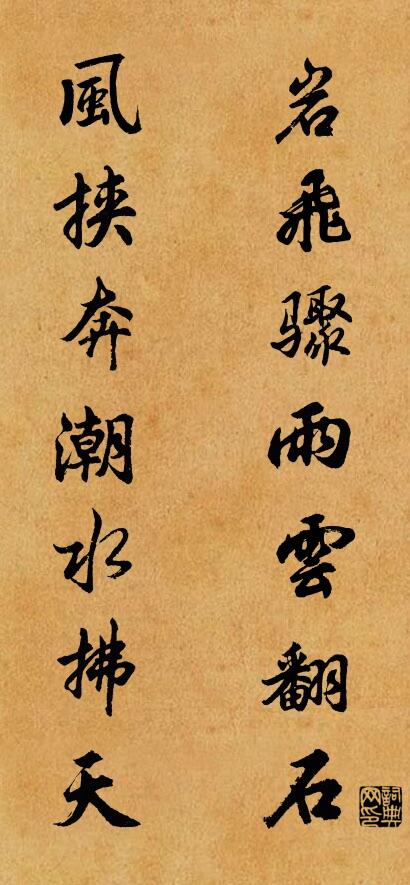 岩飛驟雨雲翻石
風挾奔潮水拂天
詞典网印